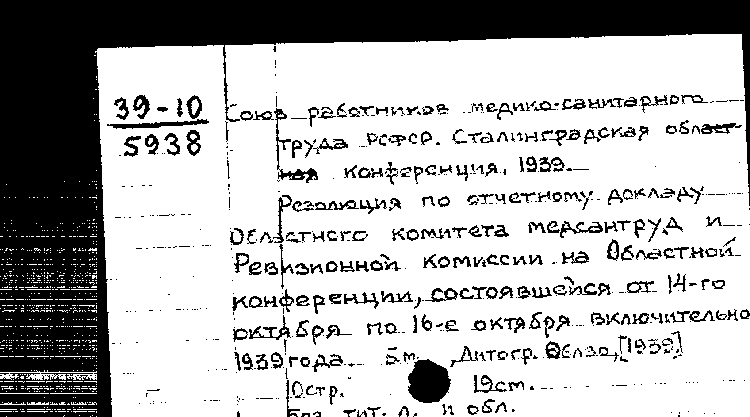 39-10
5938
Союз работников медико-санитарного
труда РСФСР. Сталинградская област-
ная конференция, 1939.
Резолюция по отчетному докладу
Областного комитета медсантруд и
Ревизионной комиссии на Областной
конференции, состоявшейся от 14-го
октября по 16-е октября включительно
1939 года. Б.м., Литогр. Облзо, [1939]
10стр. 19см.
Без тит. л. и обл.